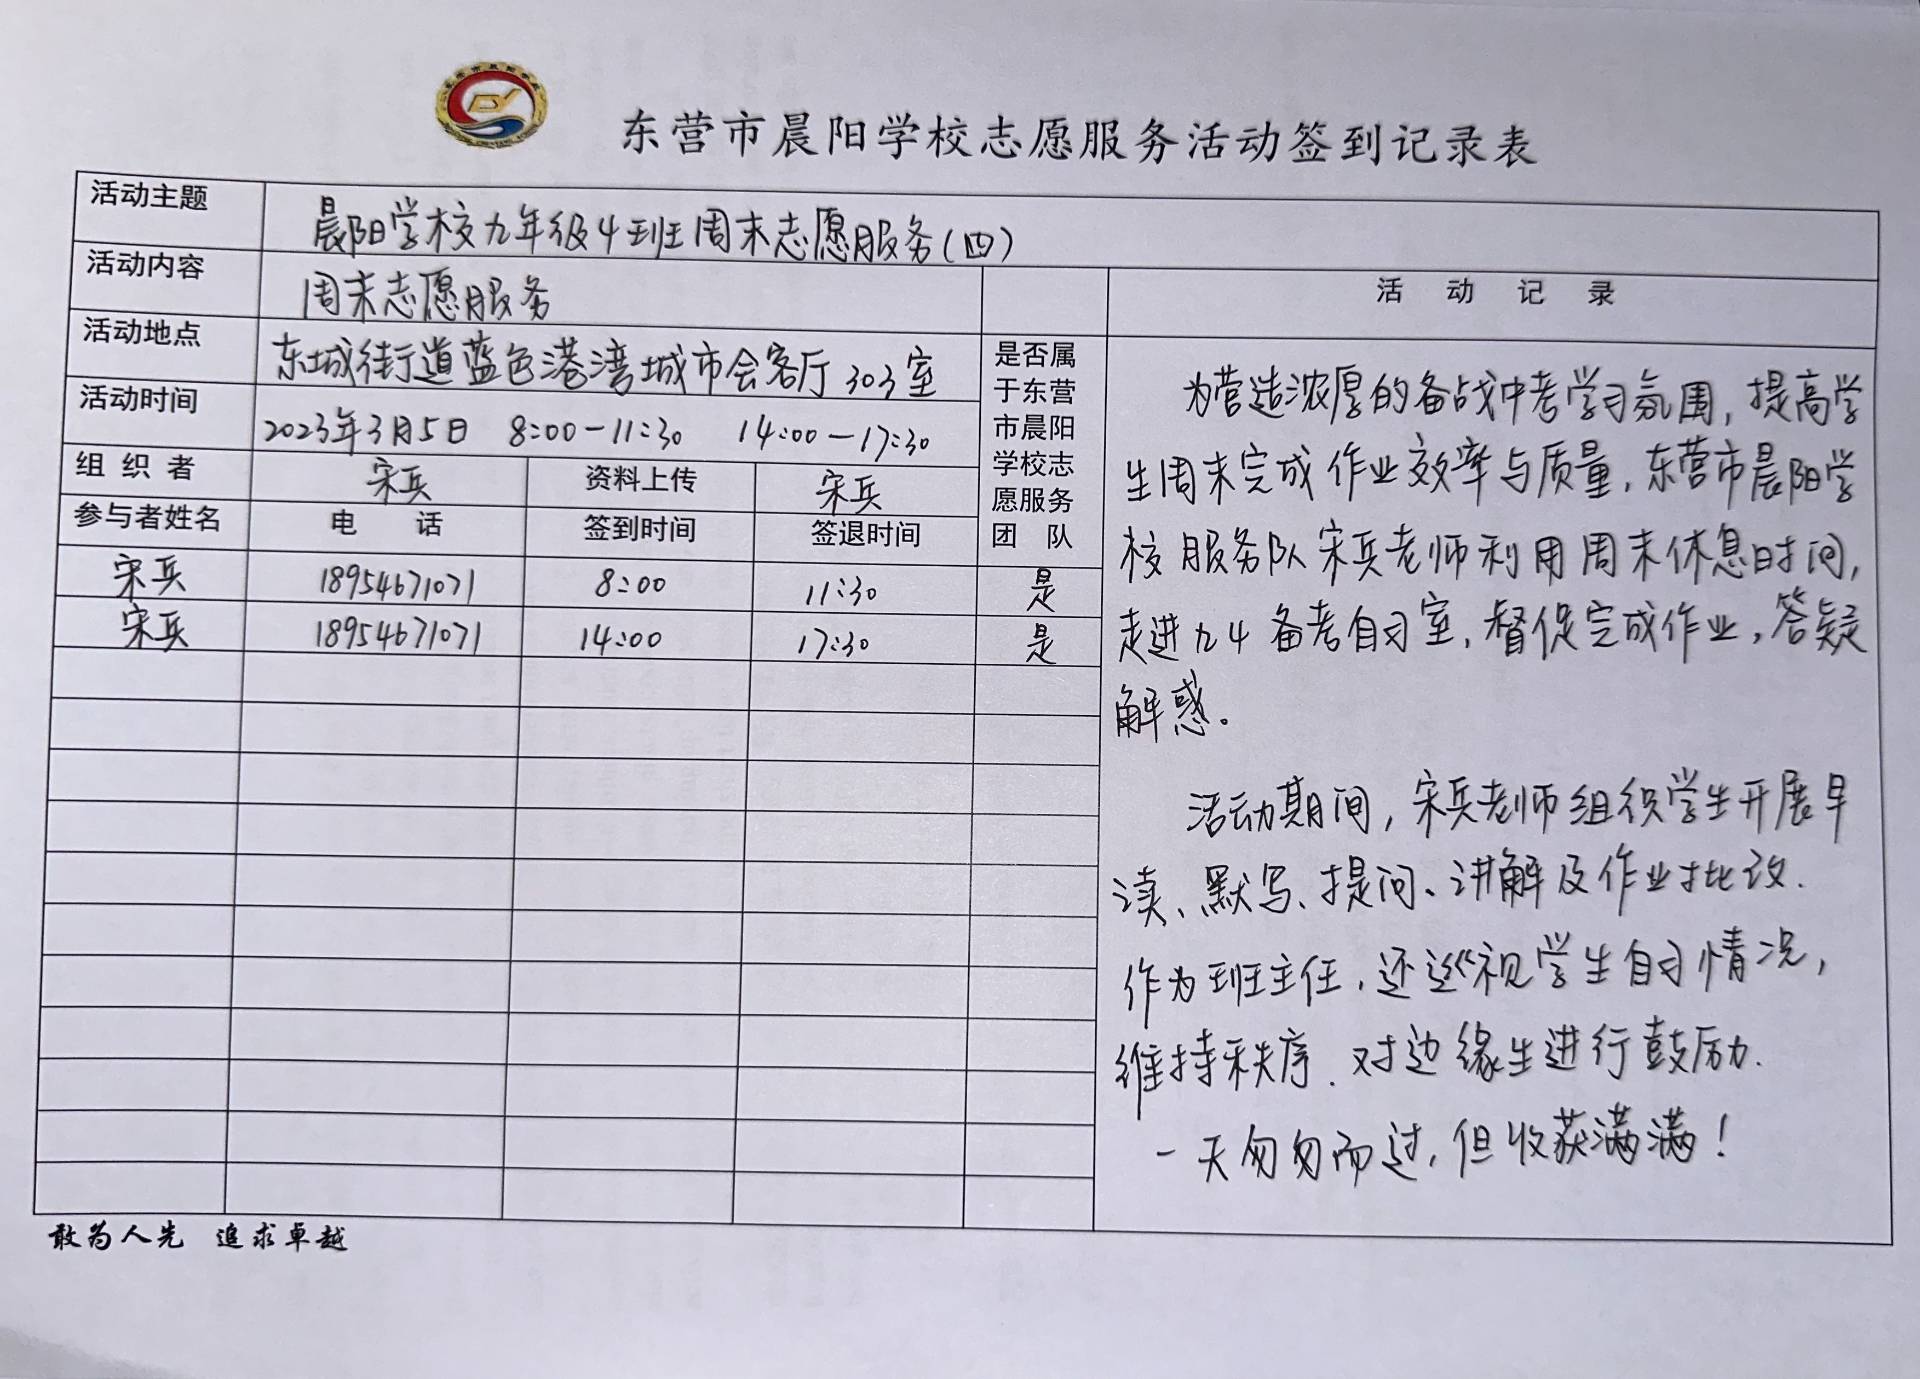 东营市晨阳学校志愿服务活动签到记录表
活动主题 晨阳学校九年级4班周末志愿服务(四)
活动内容 周末志愿服务
活动地点 东城街道蓝色港湾城市会客厅303室
活动时间 2023年3月5日 8:00-11:30 14:00-17:30
组织者 宋兵 资料上传 宋兵
参与者姓名 电 话 签到时间 签退时间
是否属
于东营
市晨阳
学校志
愿服务
团 队
宋兵 18954671071 8:00 11:30 是
宋兵 18954671071 14:00 17:30 是
活 动 记 录
为营造浓厚的备战中考学习氛围,提高学
生周末完成作业效率与质量,东营市晨阳学
校服务队宋兵老师利用周末休息时间,
走进九4备考自习室,督促完成作业,答疑
解惑。
活动期间,宋兵老师组织学生开展早
读、默写、提问、讲解及作业批改.
作为班主任,还巡视学生自习情况,
维持秩序.对边缘生进行鼓励.
一天匆匆而过,但收获满满!
敢为人先 追求卓越